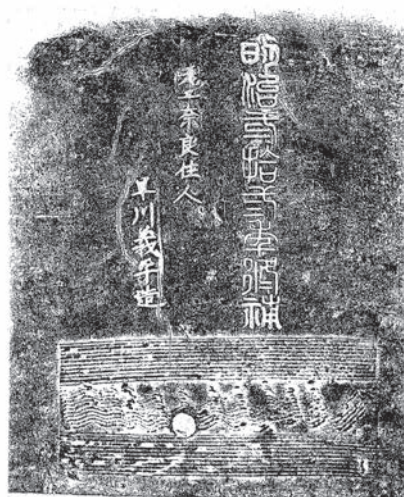 明治弐拾弐年修補
瓦工奈良住人
早川義平造